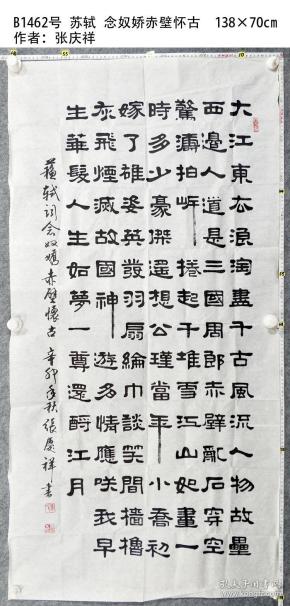 B1462号 苏轼 念奴娇赤壁怀古 138×70㎝
作者：张庆祥
大江東去浪淘盡千古風流人物故壘
西邊人道是三國周郎赤壁亂石穿空
驚濤拍岸捲起千堆雪江山如畫一
時多少豪傑遥想公瑾當年小喬初
嫁了雄姿英發羽扇綸巾談笑間檣櫓
灰飛煙滅故國神遊多情應咲我早
生華髮人生如夢一尊還酹江月
蘇軾詞念奴嬌赤壁懷古 辛卯年秋張慶祥書